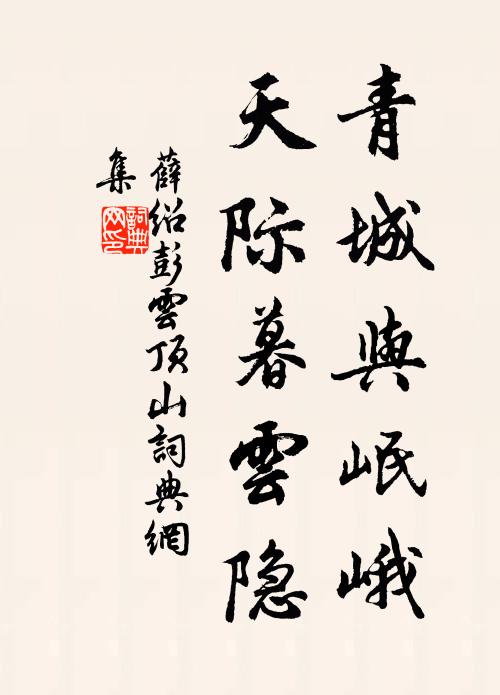 青城與岷峨
天际暮雲隐
薛绍彭雲顶山詞典網
集
詞典網印